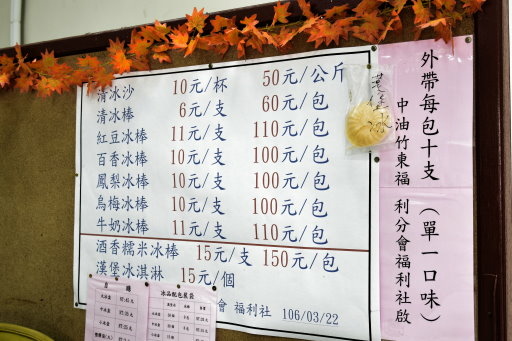 清冰沙 10元/杯 50元/公斤
清冰棒 6元/支 60元/包
紅豆冰棒 11元/支 110元/包
百香冰棒 10元/支 100元/包
鳳梨冰棒 10元/支 100元/包
烏梅冰棒 10元/支 100元/包
牛奶冰棒 11元/支 110元/包
酒香糯米冰棒 15元/支 150元/包
漢堡冰淇淋 15元/個
會 福利社 106/03/22
外帶每包十支（單一口味）
中油竹東福利分會福利社啟
冰品配包展袋